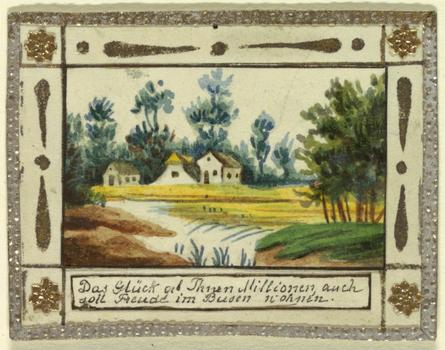 Das Glück geb Ihnen Millionen, auch
soll Freude im Busen wohnen.